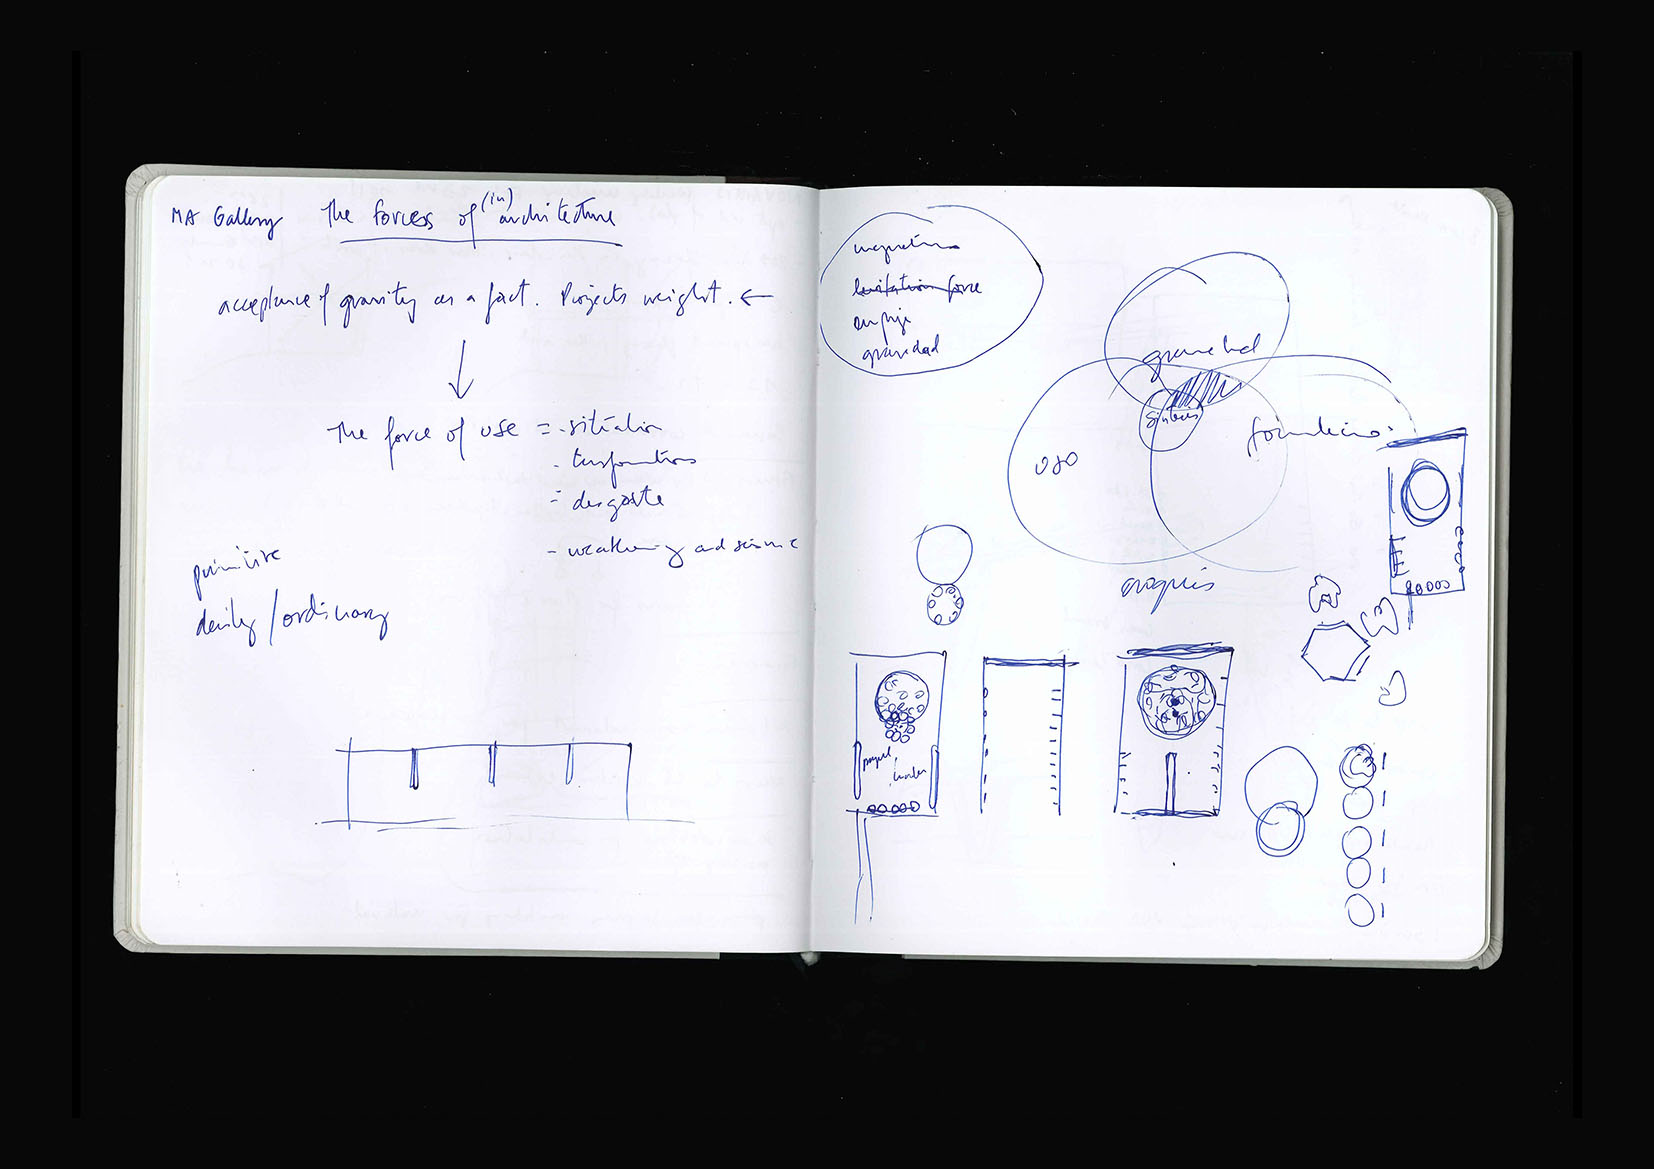 MA Gallery The forces of (in) architecture
acceptance of gravity as a fact. Projects weight. ←
The force of use = - situation
- transformations
- desgaste
- weathering and seismic
primitive
daily / ordinary
magnetism
levitation force
empuje
gravedad
gravedad
síntesis
uso
croquis